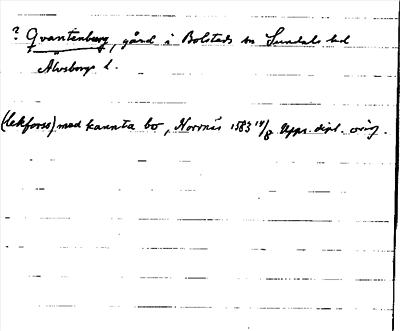 ? Qvantenburg, gård i Bolstads sn Sundals hd
Älvsborgs l.
(lekforss) med kannta bo, Norrnäs 1583 14/8 Upps. dipl. orig.